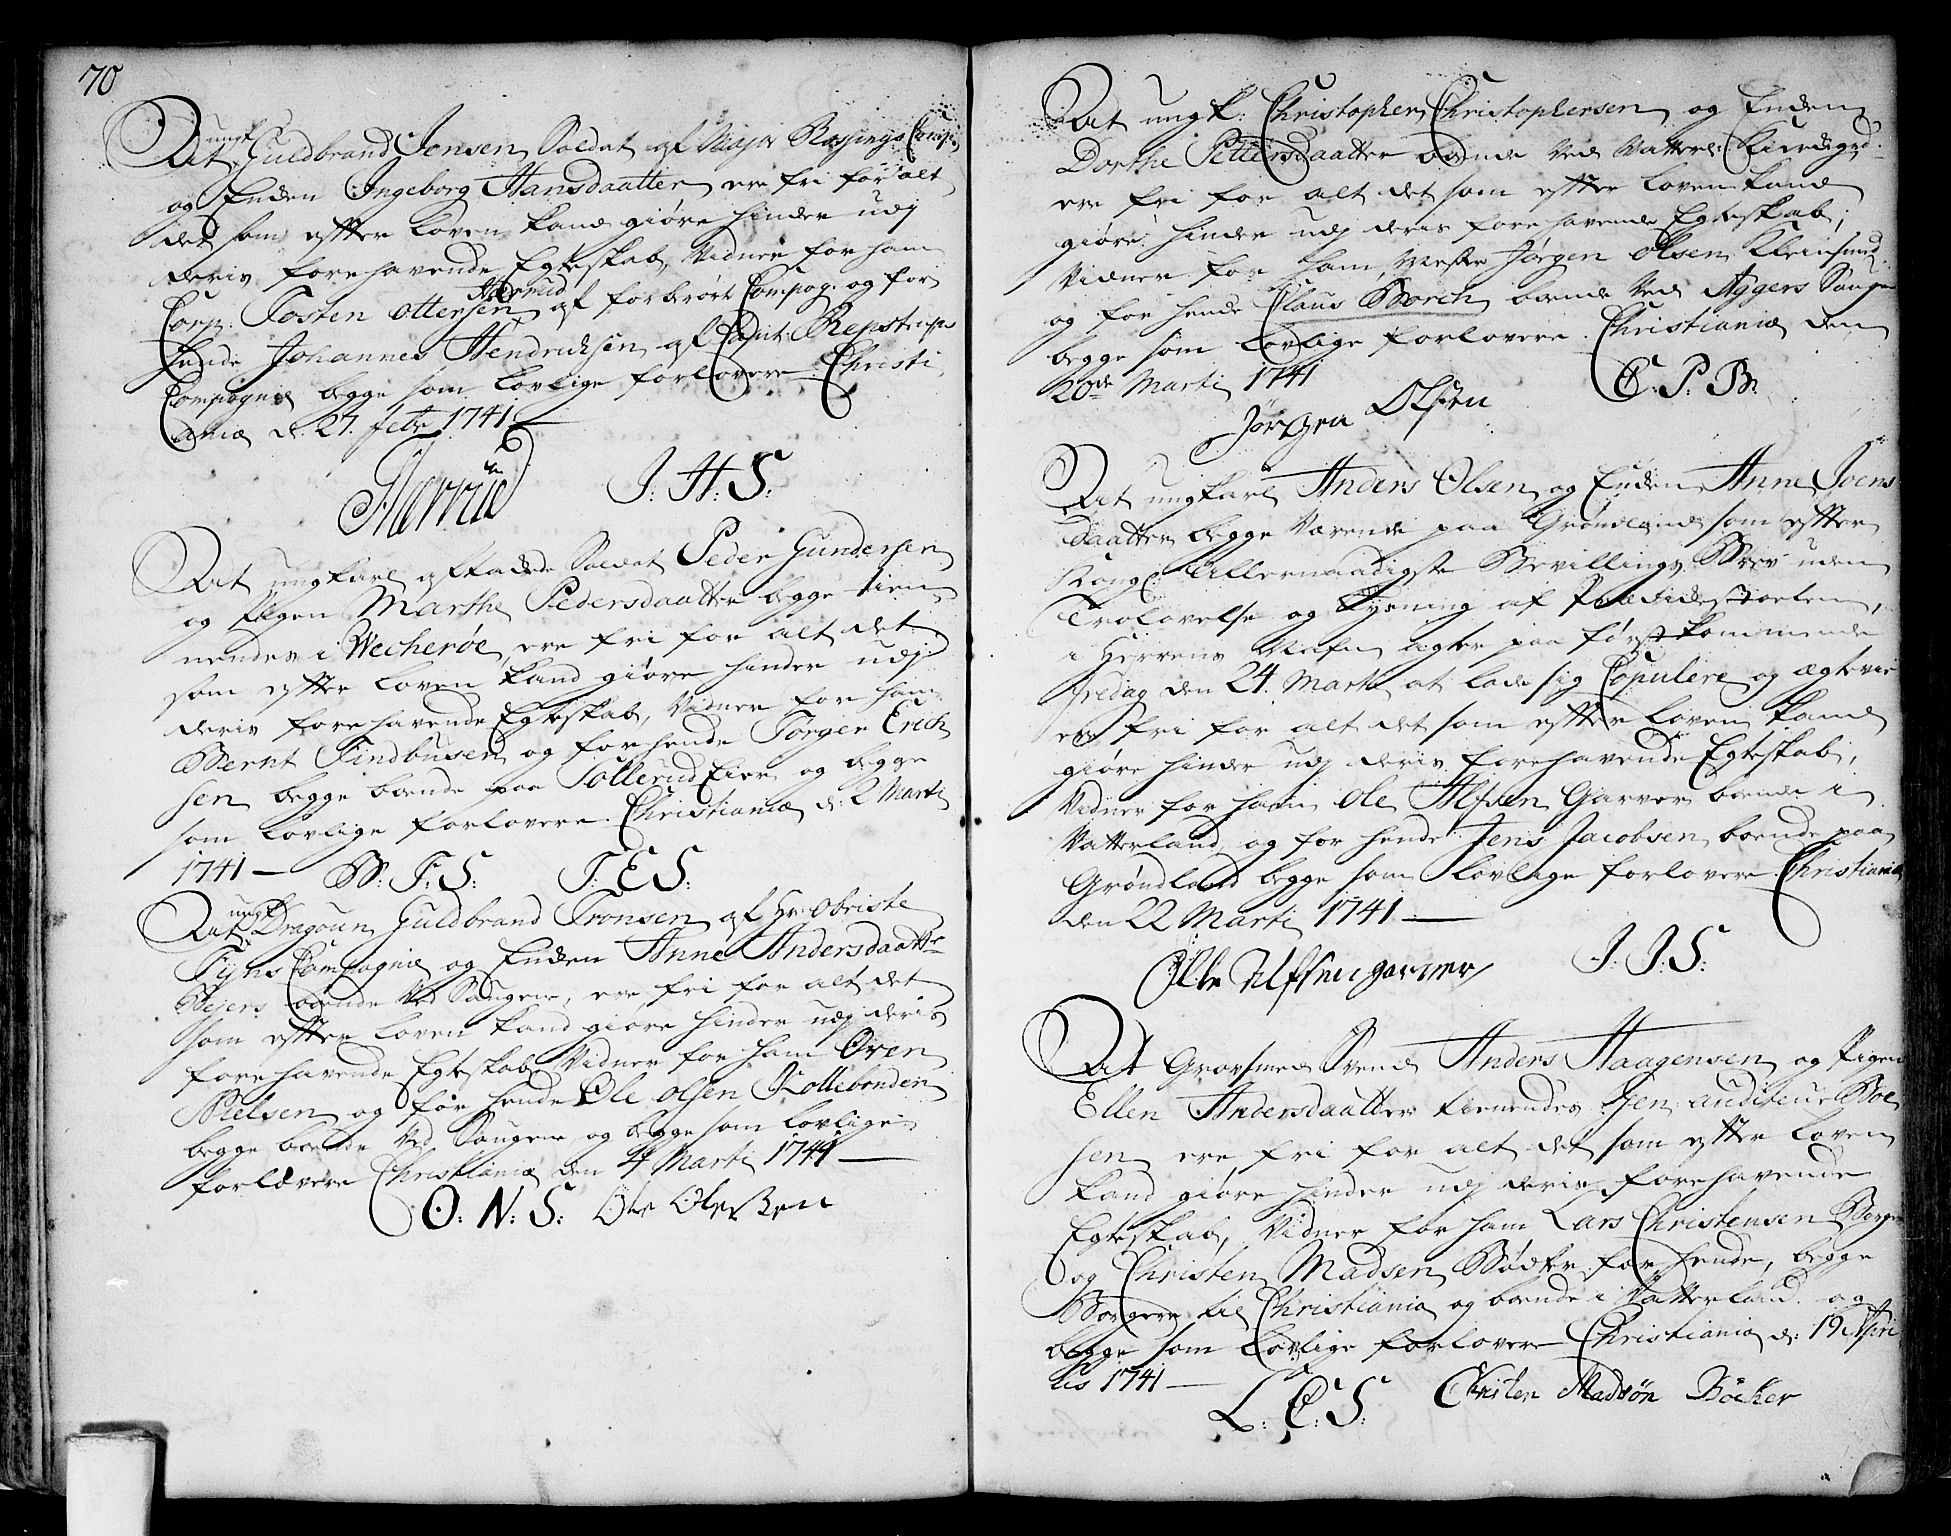 70
At ungk: Guldbrand Jensen Soldat af Major Comp:
og Enken Ingeborg Hansdaatter ere fri for alt
det som effter Loven kand giøre hinder udj
deris forehavende Egteskab, Vidner for ham
Corp. Tosten Ottersen Harrud af Compag. og for
hende Johannes Hendrichsen af Capit: Repstorps
Compagnie begge som lovlige forlovere. Christi
ania d. 27. febr 1741 —
Harrud J: H: S:
At ungkarl afskadede Soldat Peder Gundersen
og Pigen Marthe Pedersdaatter begge tien
nendes i Wecherøe, ere fri for alt det
som effter Loven kand giøre hinder udj
deris forehavende Egteskab, Vidner for ham
Bernt Findbusen og for hende Torger Erich
sen begge boende paa Tollerud Eier og begge
som lovlige forlovere. Christiania d: 2 Marti
1741 — B: F: S: T: E S:
At ungk: Dragoun Guldbrand Tronsen af Hr: Obriste
Fyhns Compagnie og Enken Anne Andersdaatter
Bejers boende Ved Saugene, ere fri for alt det
som effter Loven kand giøre hinder udj deris
forehavende Egteskab, Vidner for ham Oven
Nielsen og for hende Ole Olsen Kollebonden
begge boende Ved Saugene og begge som lovlige
forlovere Christiania den 4 Marti 1741 —
O: N: S: Ole Olessen
At ungk: Christopher Christophersen og Enken
Dorthe Pettersdaatter boende Ved Vatterl:
ere fri for alt det som effter Loven kand
giøre hinder udj deris forehavende Egteskab;
Vidner for ham, Mester Jørgen Olsen Kleinsmed
og for hende Claus Borch boende Ved Aggers Sauge
begge som lovlige forlovere. Christiania den
20de Marti 1741 C. P. B.
Jørgen Olsen
At ungkarl Anders Olsen og Enken Anne Joens
daatter begge Værende paa Grønland som effter
Kongl: Allernaadigste Bevillings Brev uden
Trolovelse og Lysning af Prædikestoelen,
i Herrens Nafn agter paa førstkommende
fredag den 24. Marti at lade sig Copulere og ægtevie
ere fri for alt det som effter Loven kand
giøre hinder udj deris forehavende Egteskab,
Vidner for ham Ole Alfsen Garver boende i
Vatterland, og for hende Jens Jacobsen boende paa
Grøndland begge som lovlige forlovere Christiania
den 22 Marti 1741 —
Olle Alfsen garver J. J. S:
At Grovsmed Svend Anders Haagensen og Pigen
Ellen Andersdaatter tienendes Gen: auditeur Boe
sen ere fri for alt det som effter Loven
kand giøre hinder udj deris forehavende
Egteskab, Vidner for ham Lars Christensen Berger
og Christen Madsen Bødker for hende, begge
Borgere til Christiania og boende i Vatterland. og
begge som lovlige forlovere Christiania d: 19 Apri
lis 1741 —
L: C: S: Christen Madsøn Böcker